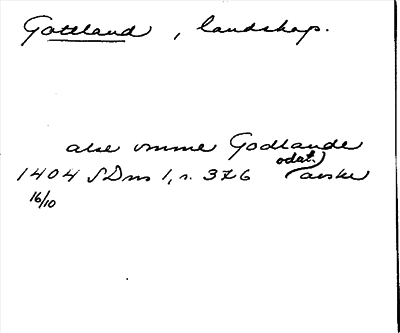 Gottland, landskap.
alse vmme Godlande
1404 SDns 1, s. 376 (odat. avskr)
16/10